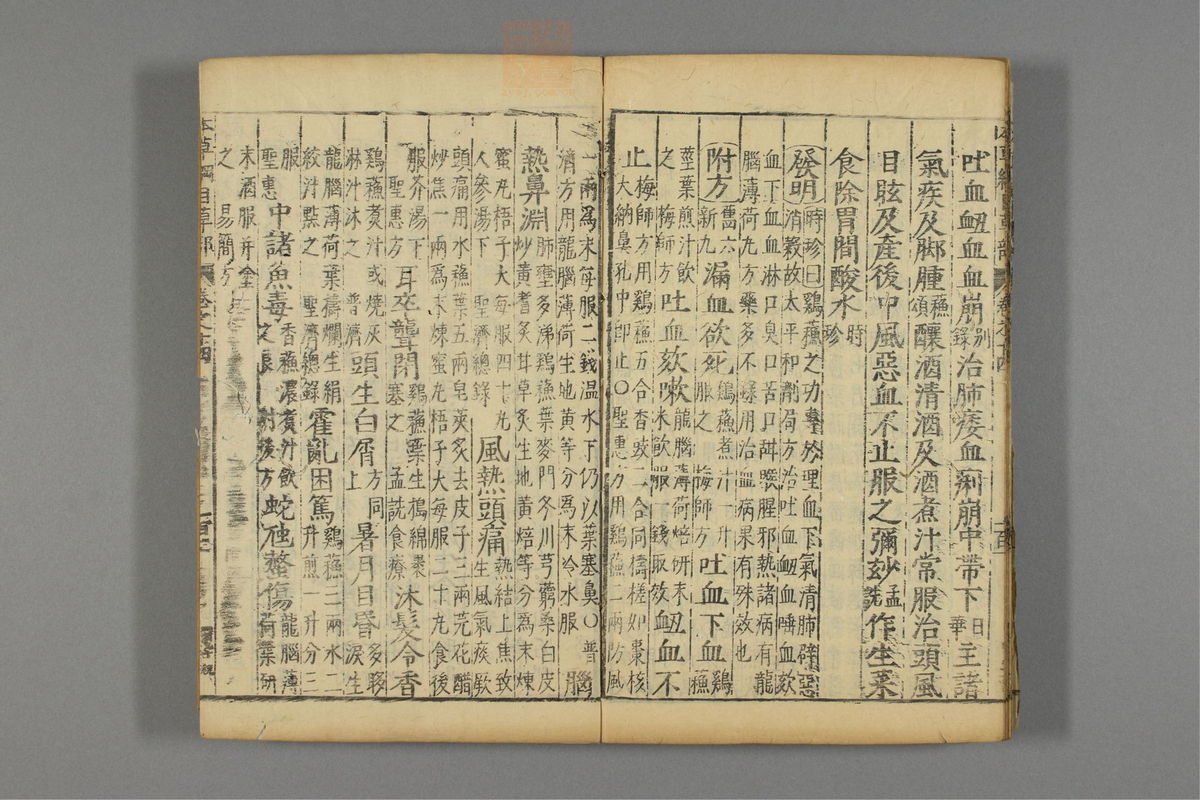 吐血衄血血崩別錄治肺痿血痢崩中帶下日華主諸
氣疾及脚腫蘓頌釀酒清酒及酒煮汁常服治頭風
目眩及產後中風惡血不止服之彌玅孟詵作生菜
食除胃間酸水時珍
發明時珍曰鷄蘓之功專於理血下氣清肺辟惡消穀故太平和劑局方治吐血衄血唾血欬
血下血血淋口臭口苦口甜喉腥邪熱諸病有龍腦薄荷丸方藥多不録用治血病果有殊效也
附方舊六新九漏血欲死鷄蘓煮汁一升服之梅師方吐血下血鷄蘓
莖葉煎汁飲之梅師方吐血欬嗽龍腦薄荷焙研末米飲服一錢取效衄血不
止梅師方用鷄蘓五合香豉二合同擣搓如棗核大納鼻孔中即止○聖惠方用鷄蘓二兩防風
一兩爲末每服二錢温水下仍以葉塞鼻○普濟方用龍腦薄荷生地黃等分爲末冷水服腦
熱鼻淵肺壅多涕鷄蘓葉麥門冬川芎藭桑白皮炒黃耆炙甘草炙生地黃焙等分為末煉
蜜丸梧子大每服四十丸人參湯下聖濟總錄風熱頭痛熱結上焦致生風氣痰厥
頭痛用水蘓葉五兩皂莢炙去皮子三兩芫花醋炒焦一兩爲末煉蜜丸梧子大每服二十丸食後
服芥湯下聖惠方耳卒聾閉鷄蘓葉生搗綿裹塞之孟詵食療沐髮令香
鷄蘓煮汁或燒灰淋汁沐之普濟頭生白屑方同上暑月目昏多眵淚生
龍腦薄荷葉擣爛生絹絞汁點之聖濟總錄霍亂困篤鷄蘓三兩水二升煎一升分三
服聖惠中諸魚毒香蘓濃煮汁飲之良肘後方蛇虺螫傷龍腦薄荷葉研
末酒服并塗之易簡方
本草綱目草部 卷之十四